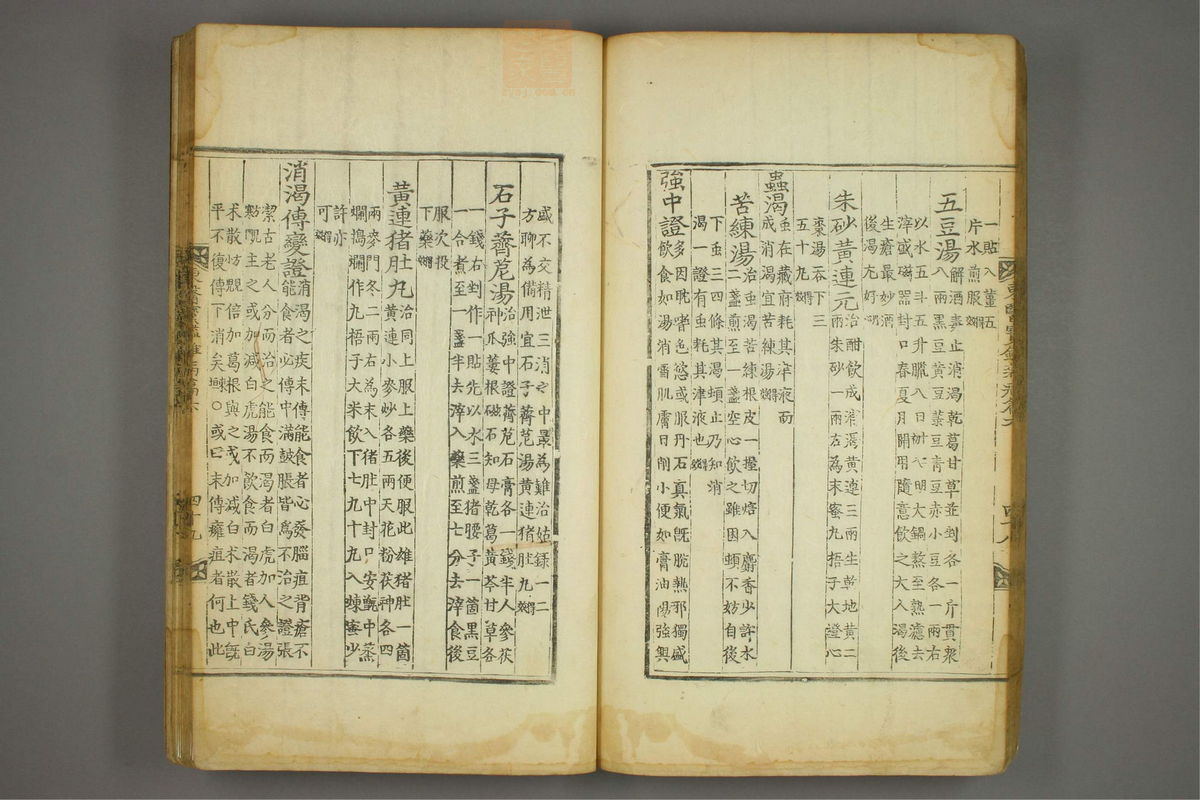 一貼入薑五
片水煎服
五豆湯
解酒毒止消渴乾葛甘草並剉各一斤貫衆
八兩黑豆黃豆菉豆靑豆赤小豆各一兩右
以水五斗五升臘八日大鍋熬至熟濾去
滓盛磁器封口春夏月開用隨意飮之大人渴後
生瘡最妙酒
後渴尤好
朱砂黃連元
治酣飮成消渴黃連三兩生乾地黃二
兩朱砂一兩右爲末蜜丸梧子大燈心
棗湯呑下三
五十丸
蟲渴
虫在藏府耗其津液而
成消渴宜苦練湯
苦練湯
治虫渴苦練根皮一握切焙入麝香少許水
二盞煎至一盞空心飮之雖困頓不妨自後
下虫三四條其渴頓止乃知消
渴一證有虫耗其津液也
強中證
多因耽嗜色慾或服丹石眞氣旣脫熱邪獨盛
飮食如湯消雪肌膚日削小便如膏油陽強興
盛不交精泄三消之中最爲難治姑錄一二
方聊爲備用宜石子薺苨湯黃連猪肚丸
石子薺苨湯
治強中證薺苨石膏各一錢半人參茯
神瓜蔞根磁石知母乾葛黃芩甘草各
一錢右剉作一貼先以水三盞猪腰子一箇黑豆
一合煮至一盞半去滓入藥煎至七分去滓食後
服次投
下藥
黃連猪肚丸
治同上服上藥後便服此雄猪肚一箇
黃連小麥炒各五兩天花粉茯神各四
兩麥門冬二兩右爲末入猪肚中封口安甑中蒸
爛搗爛作丸梧子大米飮下七九十丸入煉蜜少
許亦
可
消渴傳變證
消渴之疾未傳能食者必發腦疽背瘡不
能食者必傳中滿皷脹皆爲不治之證張
潔古老人分而治之能食而渴者白虎加人參湯
主之或加減白虎湯不飮食而渴者錢氏白
朮散倍加葛根與之或加減白朮散上中旣
平不復傳下消矣○或曰末傳癰疽者何也此